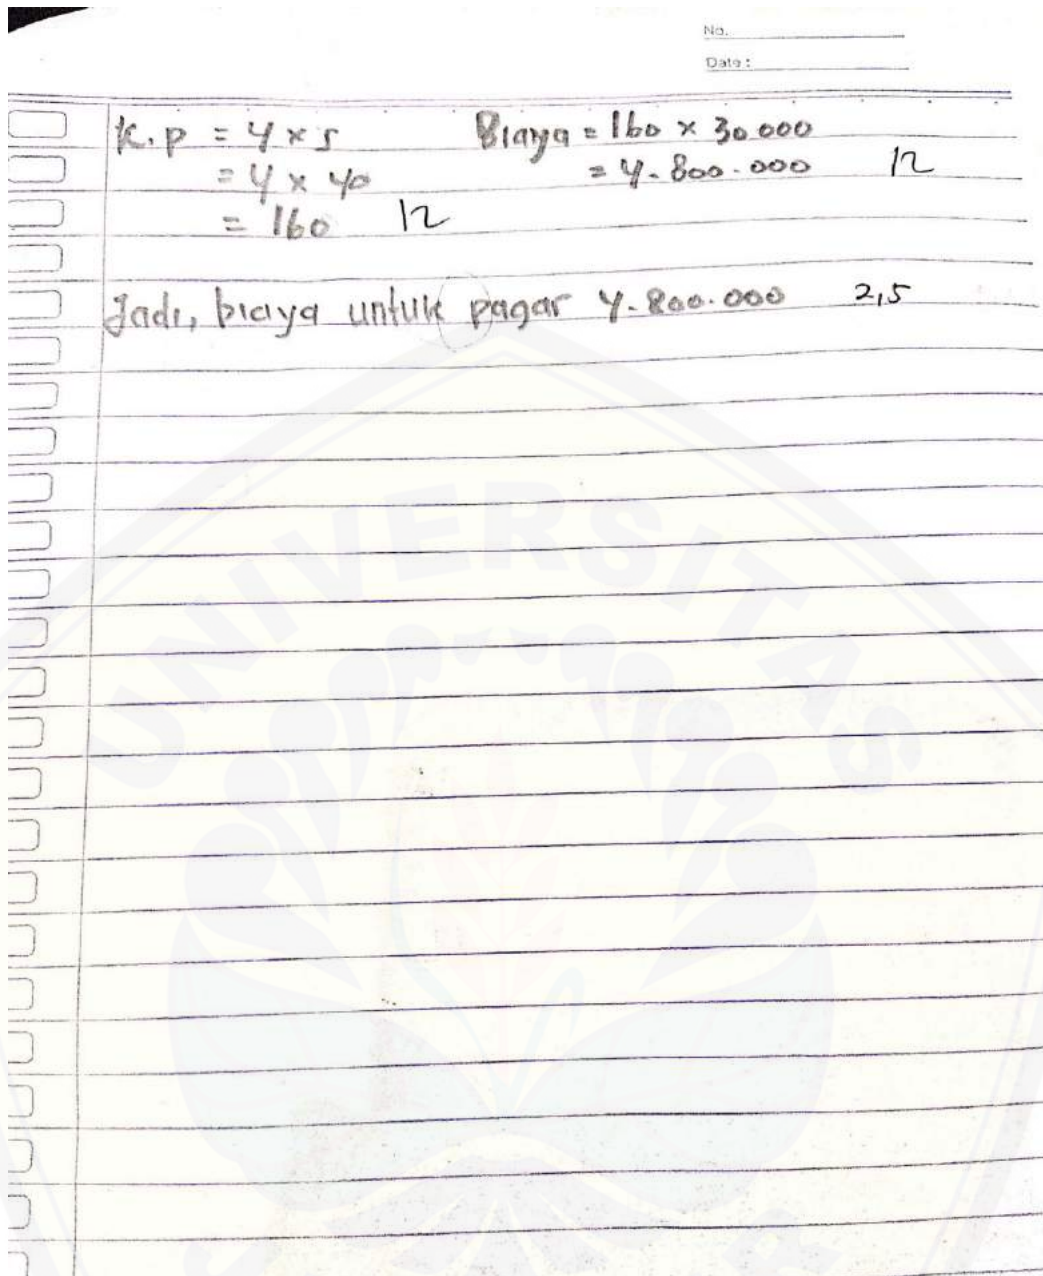 No.
Date :
K.p = 4 × s
= 4 × 40
= 160 12
Biaya = 160 × 30.000
= 4.800.000 12
Jadi, biaya untuk pagar 4.800.000 2,5
UNIVERSITAS